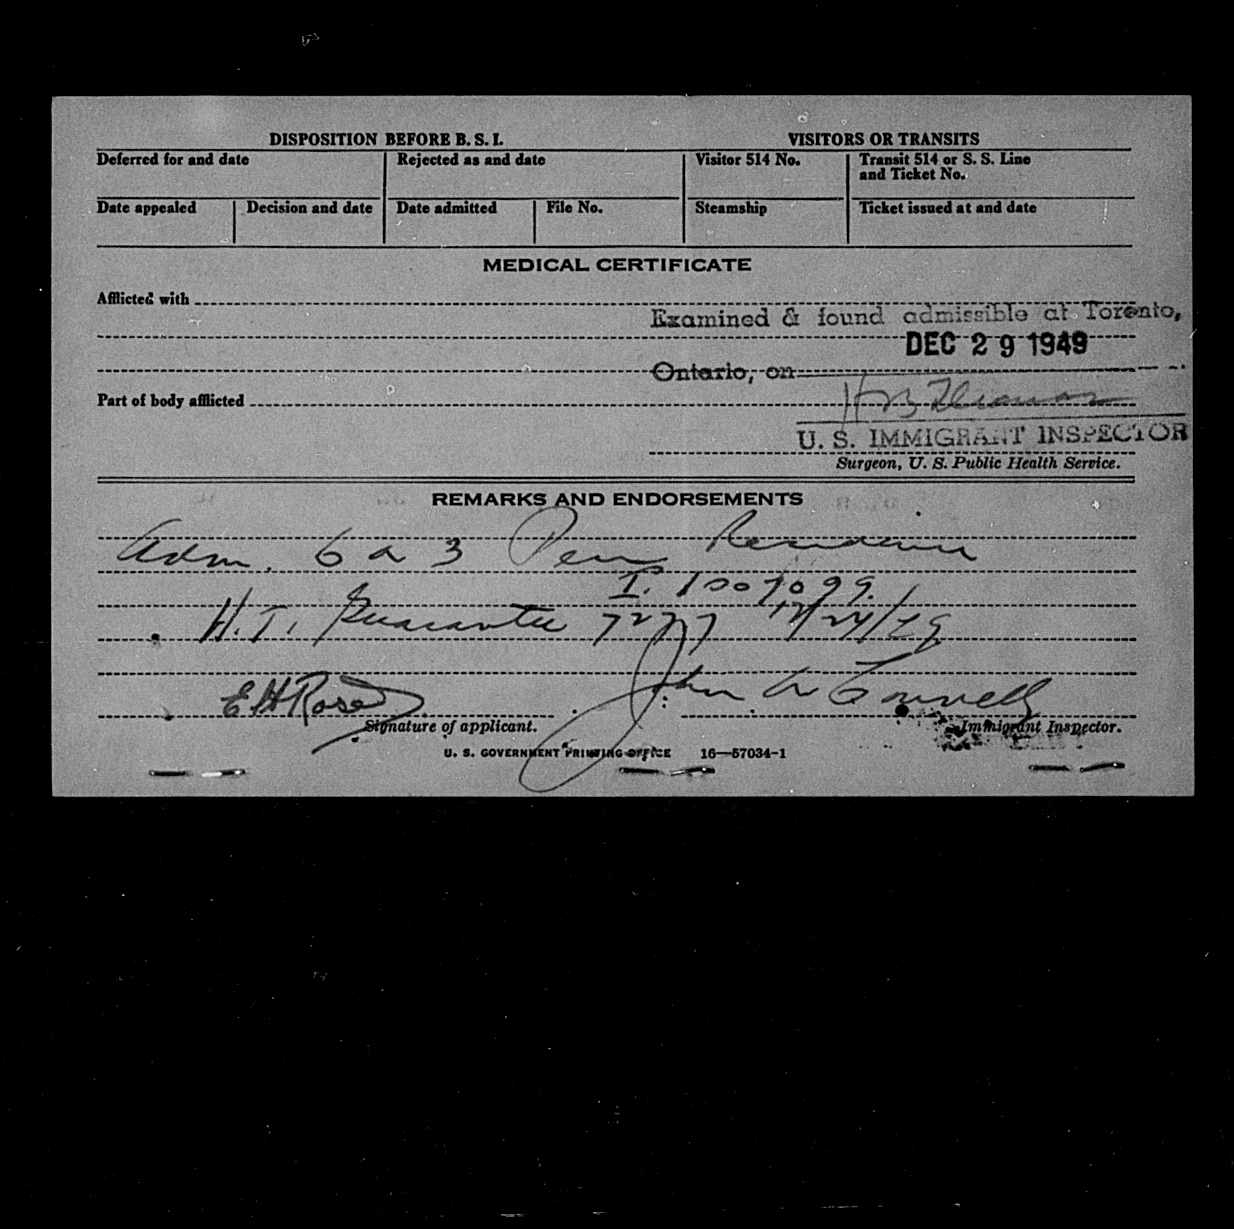 DISPOSITION BEFORE B. S. I.
VISITORS OR TRANSITS
Deferred for and date
Rejected as and date
Visitor 514 No.
Transit 514 or S. S. Line
and Ticket No.
Date appealed
Decision and date
Date admitted
File No.
Steamship
Ticket issued at and date
MEDICAL CERTIFICATE
Afflicted with
Examined & found admissible at Toronto,
DEC 29 1949
Ontario, on
Part of body afflicted
U. S. IMMIGRANT INSPECTOR
Surgeon, U. S. Public Health Service.
REMARKS AND ENDORSEMENTS
Adm. 6 a 3
H.T. Guarantee
E H Rose
John
Signature of applicant.
Immigrant Inspector.
U. S. GOVERNMENT PRINTING OFFICE 16—57034-1